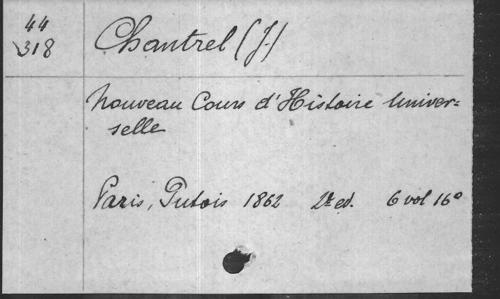 44
318
Chantrel (J.)
Nouveau Cours d'Histoire Univer-
selle
Paris, Putois 1862 2e ed. 6 vol 16º